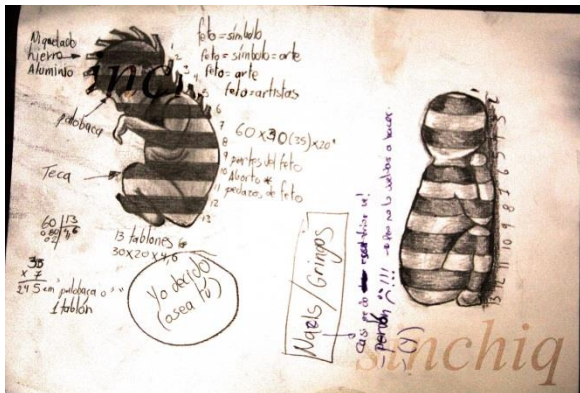 Niquelado
hierro
Aluminio
feto = símbolo
feto = símbolo = arte
feto = arte
feto = artistas
palobaca
Teca
1
2
3
4
5
6
7
8
9
10
11
12
13
60 x 30 (35) x 20"
partes del feto
Aborto *
pedazos de feto
60 | 13
080 4,6
02
13 tablones 6
30x20x4,6
35
x 7
245 cm palobaca o " "
1 tablón
Yo decido
(osea tú)
Nazis/Gringos
Casi pierdo
- perdón ^^ !!! - pero no lo vuelvas a hacer.
(J)
13 12 11 10 9 8 7 6 5 4 3 2 1
sinchiq